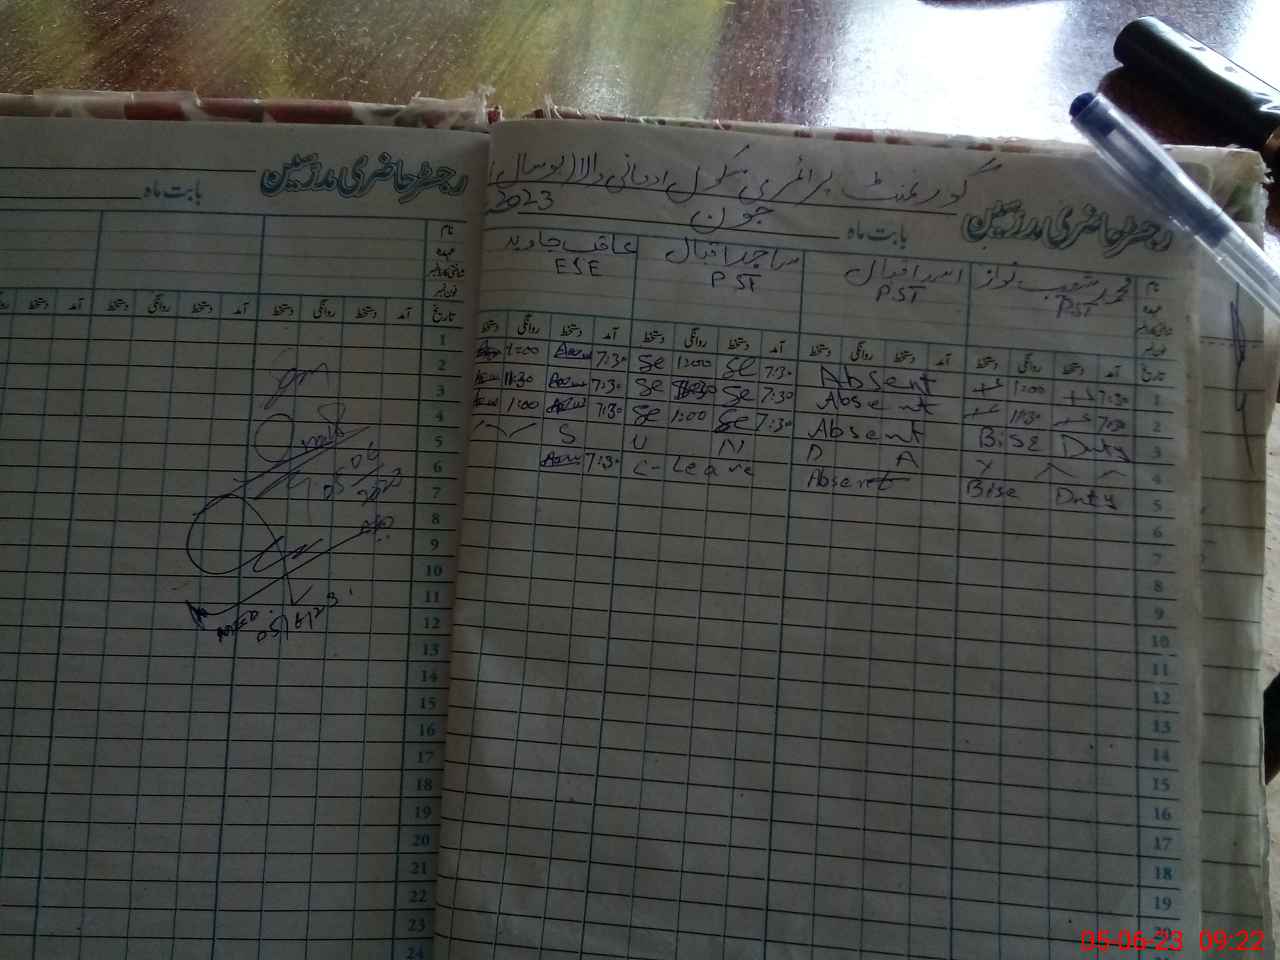 رجسٹر حاضری مدرسین
بابت ماہ
نام
عہدہ
تاریخ
آمد دستخط روانگی دستخط آمد دستخط روانگی دستخط
1
2
3
4
5
6
7
8
9
10
11
12
13
14
15
16
17
18
19
20
21
22
23
24
05/6/23
گورنمنٹ پرائمری سکول
رجسٹر حاضری مدرسین
بابت ماہ جون 2023
نام محمد شعیب نواز اسد اقبال ساجد اقبال عاقب جاوید
عہدہ PST PST PST ESE
تاریخ آمد دستخط روانگی دستخط آمد دستخط روانگی دستخط آمد دستخط روانگی دستخط آمد دستخط روانگی دستخط
1 7:30 1:00 Absent 7:30 Se 1:00 Se 7:30 1:00
2 7:30 11:30 Absent 7:30 Se Se 7:30 11:30
3 Bise Duty Absent 7:30 Se 1:00 Se 7:30 1:00
4 S U N D A Y
5 Bise Duty Absent C-Leave 7:30
6
7
8
9
10
11
12
13
14
15
16
17
18
19
20
05-06-23 09:22